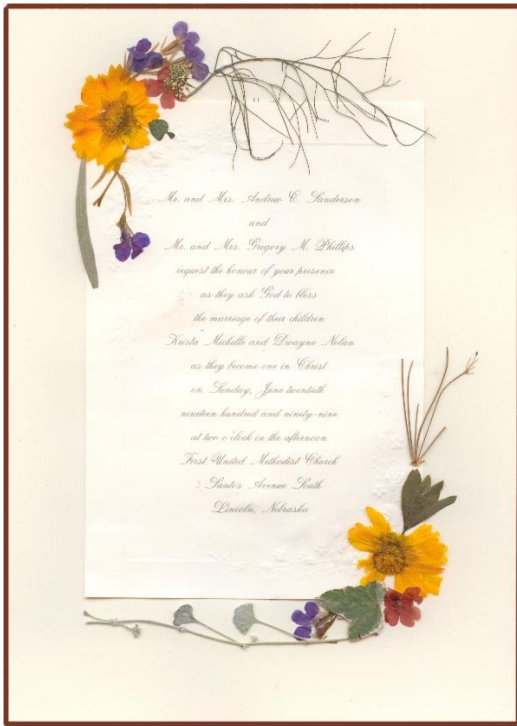 Mr. and Mrs. Andrew C. Sanderson
and
Mr. and Mrs. Gregory M. Phillips
request the honour of your presence
as they ask God to bless
the marriage of their children
Krista Michelle and Dwayne Nolan
as they become one in Christ
on Sunday, June twentieth
nineteen hundred and ninety-nine
at two o'clock in the afternoon
First United Methodist Church
2 Santos Avenue South
Lincoln, Nebraska